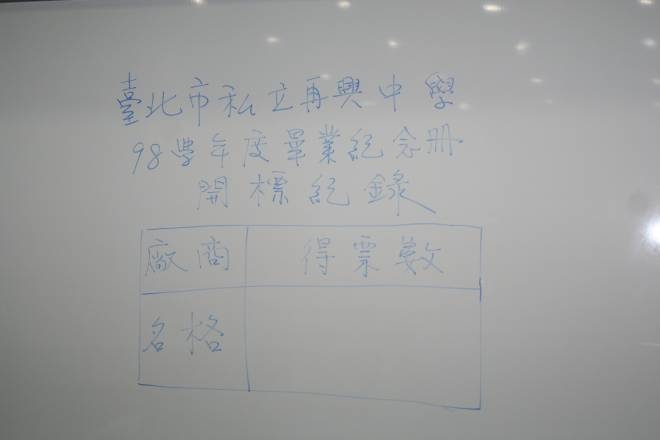 臺北市私立再興中學
98學年度畢業紀念冊
開標紀錄
廠商 得票數
名格